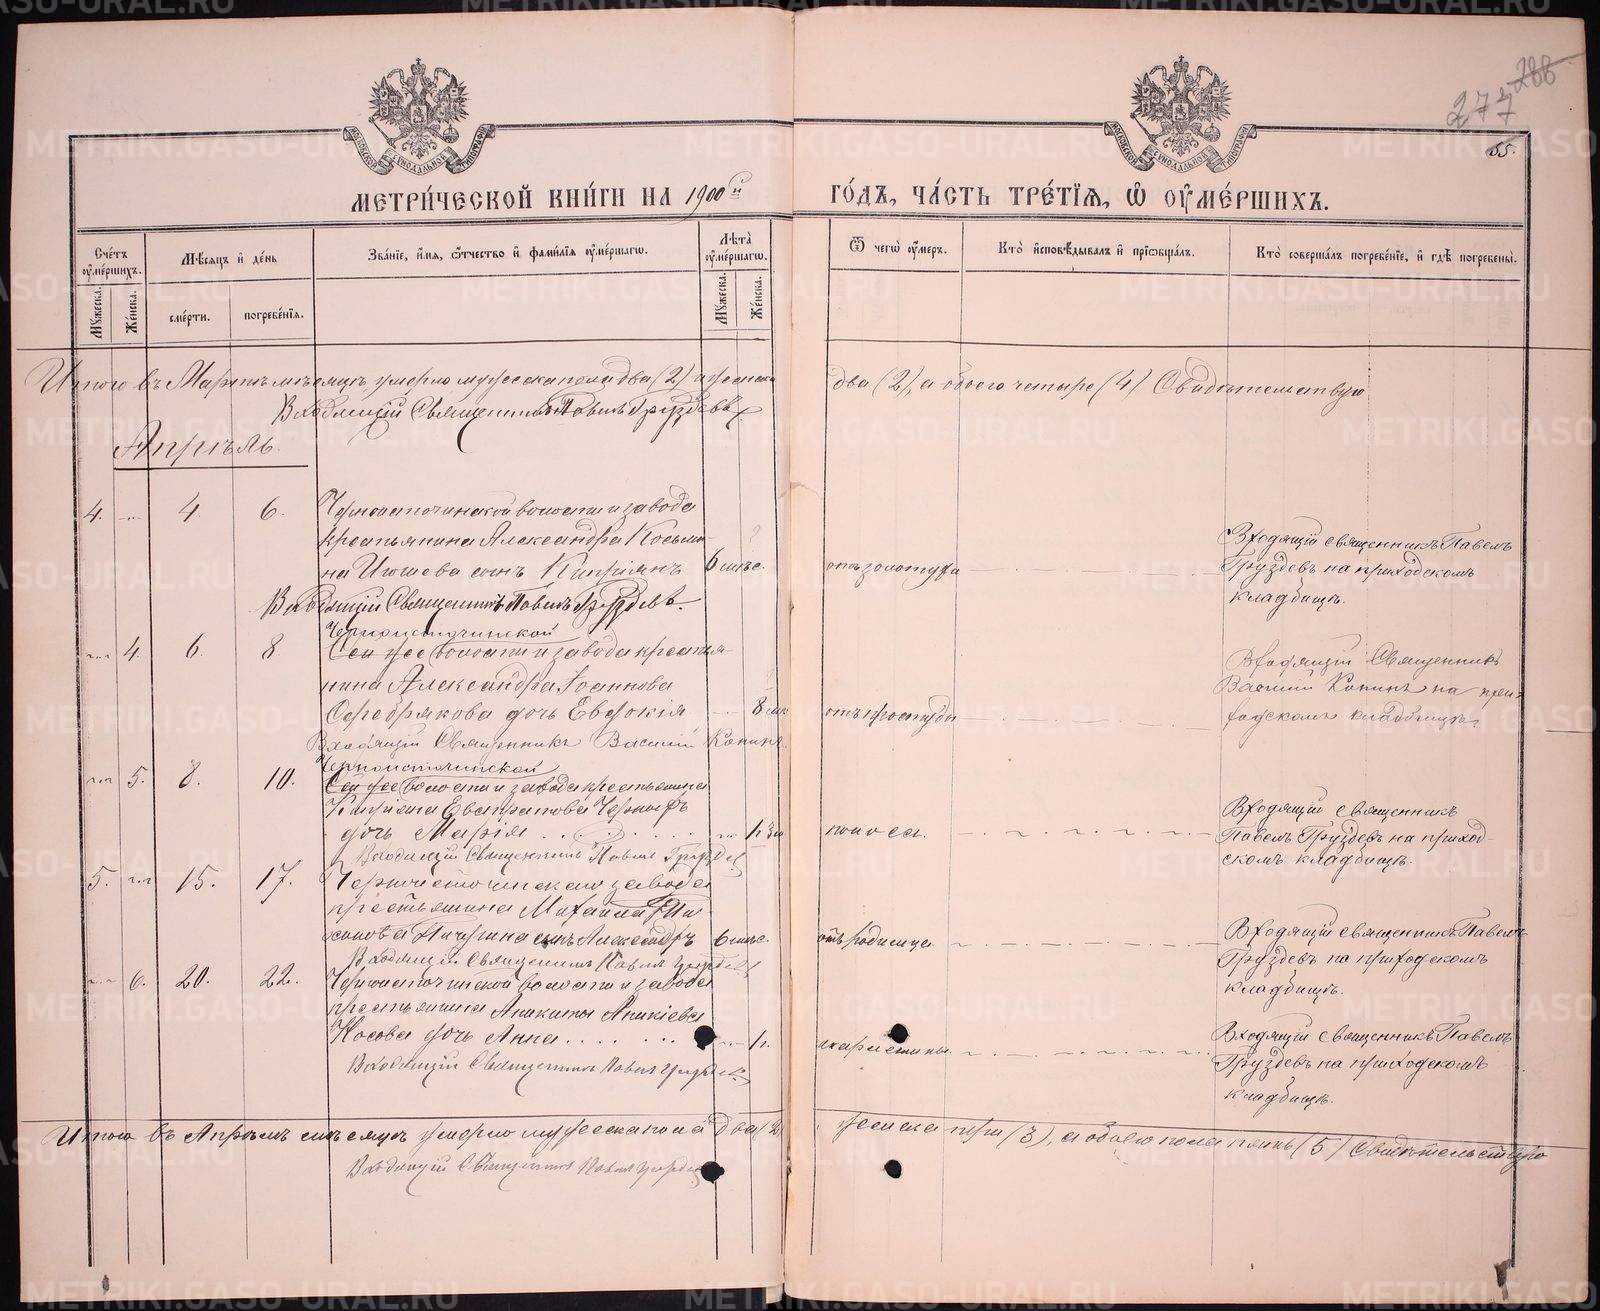 288
277
55.
МОСКОВСКОЙ СѴНОДАЛЬНОЙ ТИПОГРАФІИ
МОСКОВСКОЙ СѴНОДАЛЬНОЙ ТИПОГРАФІИ
МЕТРИ́ЧЕСКОЙ КНИ́ГИ НА 1900й ГО́ДЪ, ЧА́СТЬ ТРЕ́ТІѦ, Ѡ҆ ОУ҆МЕ́РШИХЪ.
Сче́тъ оу҆ме́ршихъ. Мѣ́сяцъ и҆ де́нь Зва́ніе, и҆́мя, ѻ҆́тчество и҆ фами́лія оу҆ме́ршагѡ. Лѣ́та оу҆ме́ршагѡ. Ѿ чегѡ̀ оу҆́меръ. Кто̀ и҆сповѣ́дывалъ и҆ прїѡбща́лъ. Кто̀ соверша́лъ погребе́ніе, и҆ гдѣ̀ погребены̀.
Му́жеска. Же́нска. сме́рти. погребе́нія. Му́жеска. Же́нска.
Итого въ Мартѣ мѣсяцѣ умерло мужеска пола два (2) и женска два (2), а обоего четыре (4) Свидѣтельствую
Входящій Священникъ Павелъ Груздевъ
Апрѣль.
4. 4. 6. Черноисточинской волости и завода
крестьянина Александра Косьмина
Июшева сынъ Кипріянъ 6 мѣс. отъ золотухи Входящій священникъ Павелъ
Груздевъ на приходскомъ
кладбищѣ.
Входящій Священникъ Павелъ Груздевъ.
Черноисточинской
4. 6. 8 Сей же волости и завода крестья-
нина Александра Іоаннова
Серебрякова дочь Евдокія 8 мѣс отъ простуды Входящій Священникъ
Василій Копинъ на при-
ходскомъ кладбищѣ
Входящій Священникъ Василій Копинъ.
Черноисточинской
5. 8. 10. Сей же волости и завода крестьянина
Кипріяна Черныхъ
дочь Марія 3 поноса. Входящій священникъ
Павелъ Груздевъ на приход-
скомъ кладбищѣ.
Входящій Священникъ Павелъ Груздевъ
5. 15. 17. Черноисточинскаго завода
крестьянина Михаила Ти-
хонова Пичугина сынъ Александръ 6 мѣс. отъ родимца. Входящій священникъ Павелъ
Груздевъ на приходскомъ
кладбищѣ.
Входящій Священникъ Павелъ Груздевъ
6. 20. 22. Черноисточинской волости и завода
крестьянина Аникиты Аникіева
Носова дочь Анна 1 г. скарлатины Входящій священникъ Павелъ
Груздевъ на приходскомъ
кладбищѣ.
Входящій Священникъ Павелъ Груздевъ
Итого въ Апрѣлѣ мѣсяцѣ умерло мужеска пола два (2) женска три (3), а обоего пола пять (5) Свидѣтельствую
Входящій Священникъ Павелъ Груздевъ
METRIKI.GASO-URAL.RU